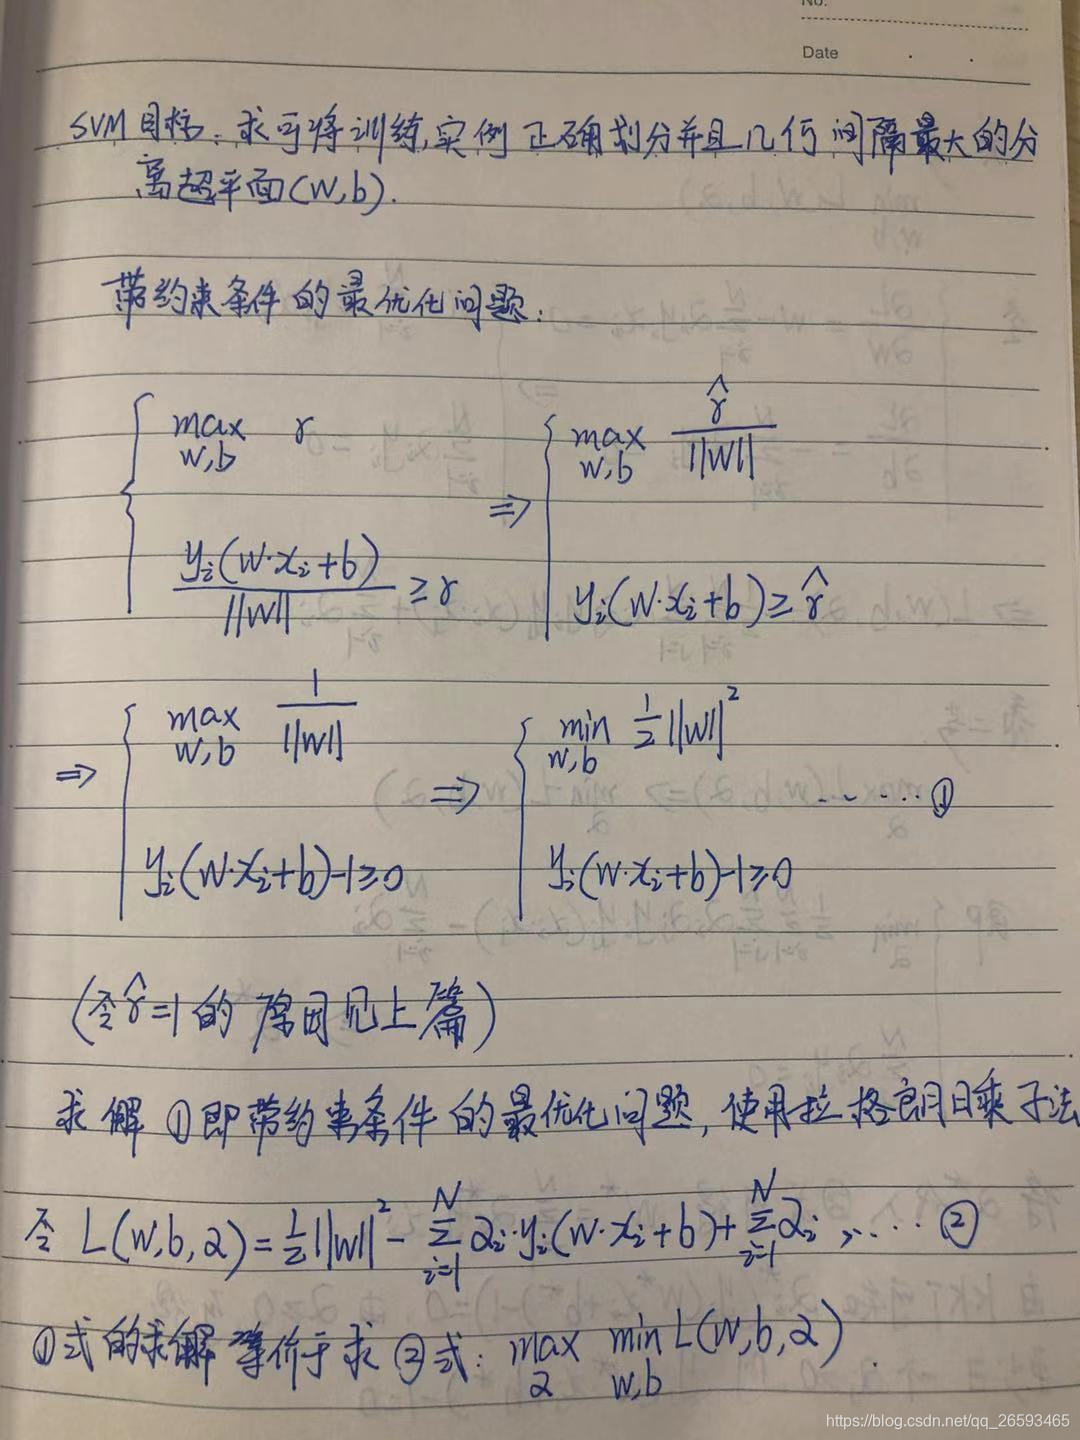 No.
Date
SVM目标:求可将训练实例正确划分并且几何间隔最大的分
离超平面(w,b).
带约束条件的最优化问题:
{ max_{w,b} r
y_i(w·x_i+b)/||w|| ≥ r
⇒ { max_{w,b} r̂/||w||
y_i(w·x_i+b) ≥ r̂
⇒ { max_{w,b} 1/||w||
y_i(w·x_i+b)-1≥0
⇒ { min_{w,b} 1/2||w||² ……①
y_i(w·x_i+b)-1≥0
(令r̂=1的原因见上篇)
求解①即带约束条件的最优化问题,使用拉格朗日乘子法
令 L(w,b,α)=1/2||w||² - Σ_{i=1}^{N} α_i·y_i(w·x_i+b)+Σ_{i=1}^{N} α_i, …②
①式的求解等价于求②式: max_α min_{w,b} L(w,b,α).
https://blog.csdn.net/qq_26593465